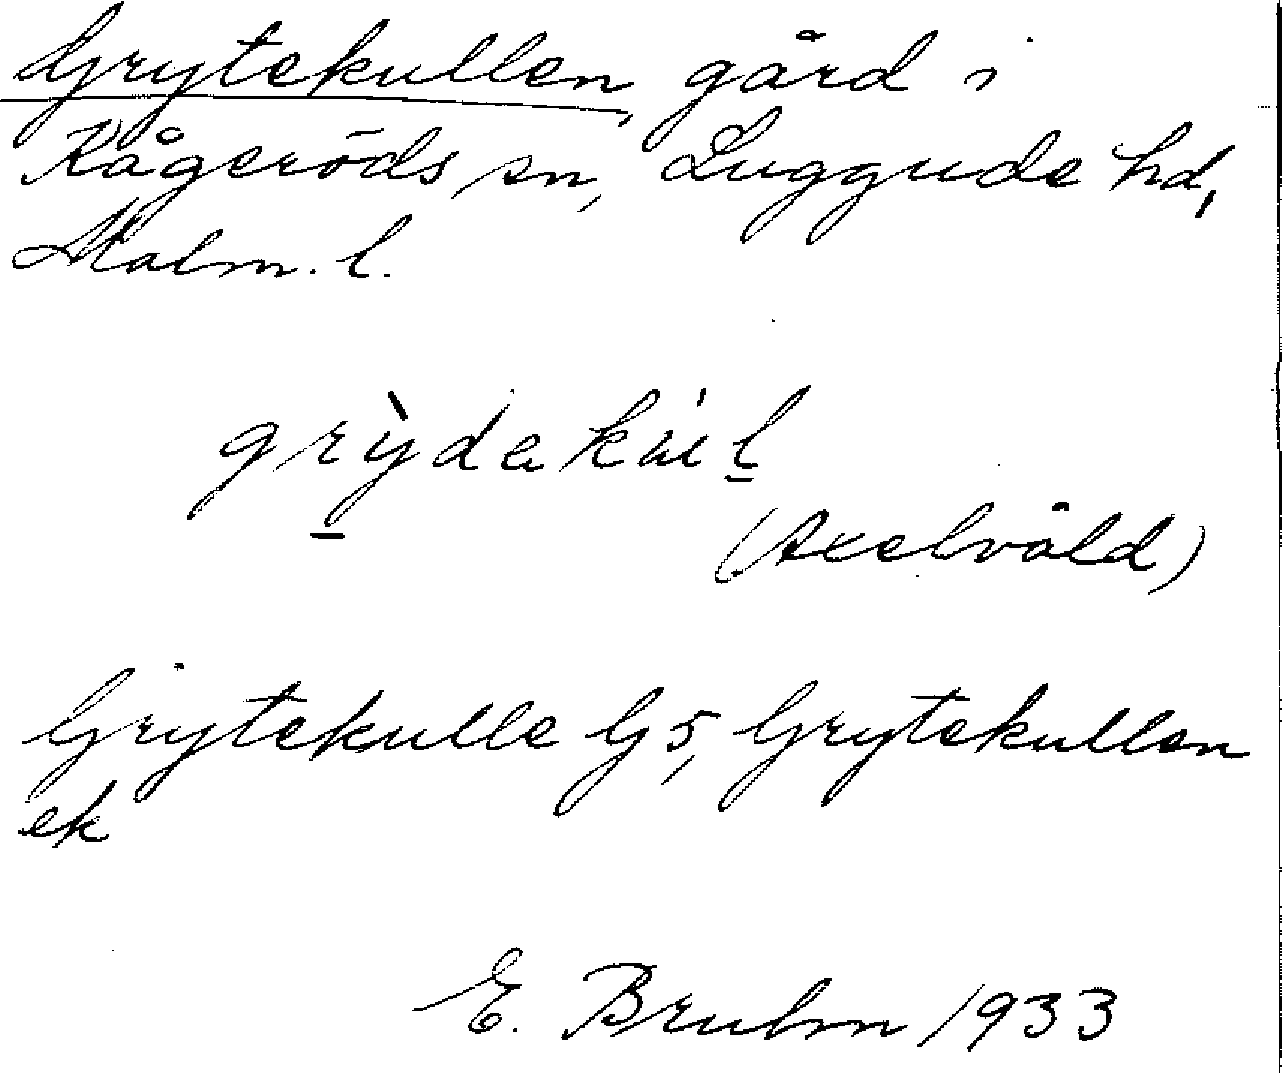 Grytekullen, gård i
Kågeröds sn, Luggude hd,
Malm. l.
grỳdakul
(Axelvåld)
Grytekulle G5, Grytekullen
ek
E. Bruhn 1933